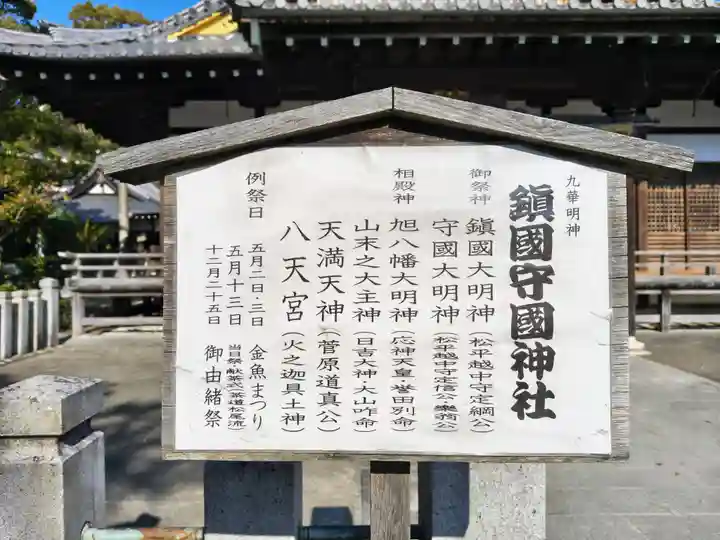 九華明神
鎮國守國神社
御祭神
鎮國大明神(松平越中守定綱公)
守國大明神(松平越中守定信公・樂翁公)
相殿神
旭八幡大明神(応神天皇・誉田別命)
山末之大主神(日吉大神・大山咋命)
天満天神(菅原道真公)
八天宮(火之迦具土神)
例祭日
五月二日・三日 金魚まつり
五月十三日 当日祭・献茶式(茶道松尾流)
十二月二十五日 御由緒祭